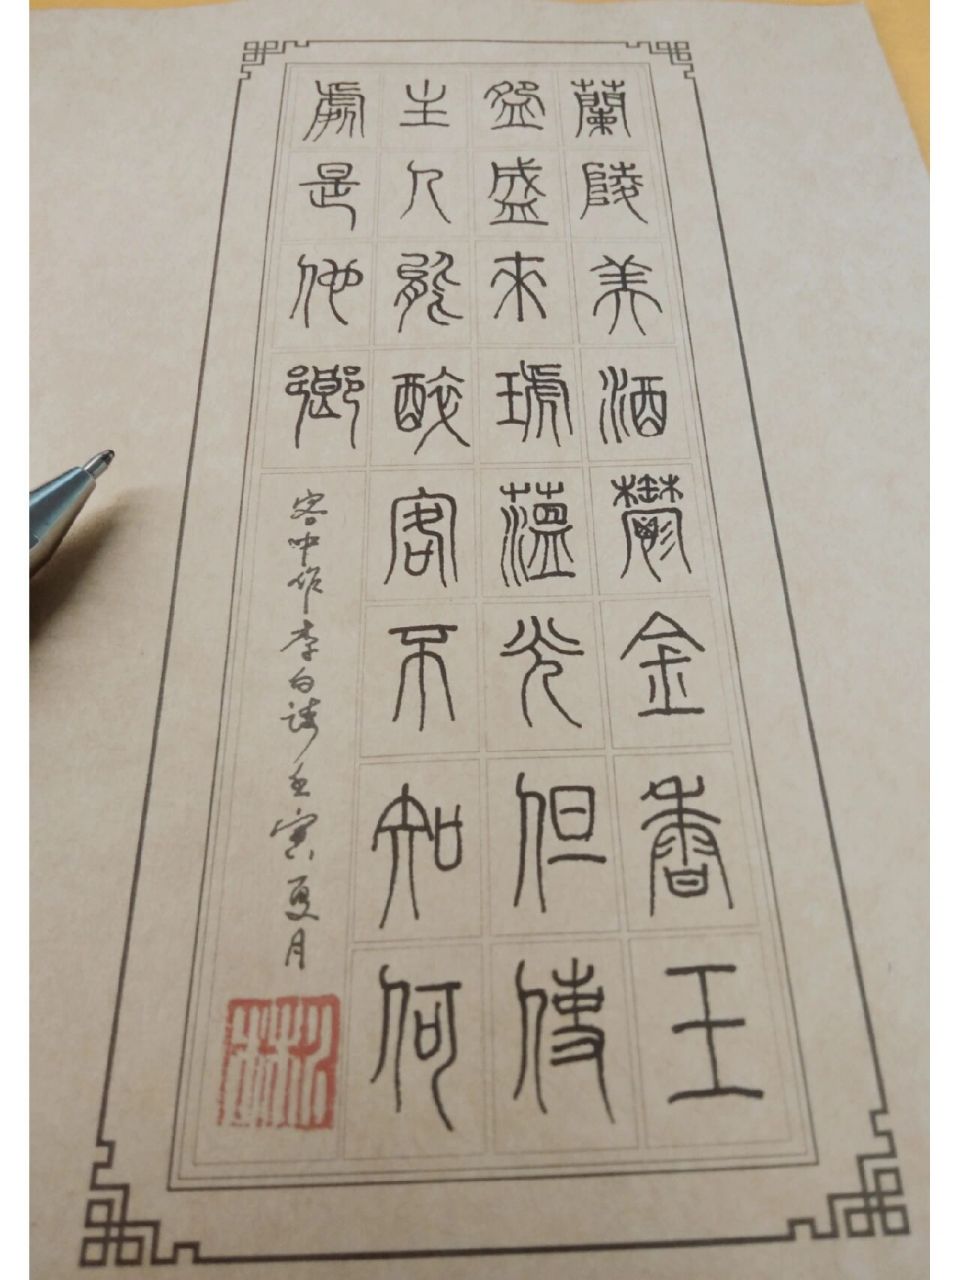 蘭陵美酒鬱金香玉
盌盛來琥蕰光但使
主人能醉客不知何
處是他鄉
客中作李白詩壬寅夏月
松林